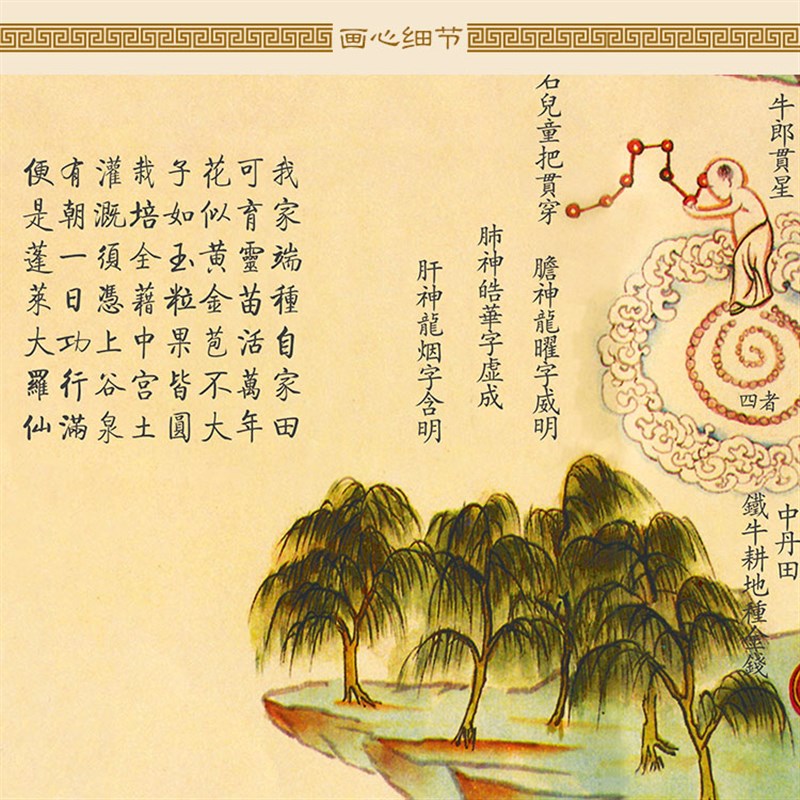 画心细节
牛郎貫星
石兒童把貫穿
四者
中丹田
鐵牛耕地種金錢
膽神龍曜字威明
肺神皓華字虛成
肝神龍烟字含明
我家端種自家田
可育靈苗活萬年
花似黃金苞不大
子如玉粒果皆圓
栽培全藉中宮土
灌溉須憑上谷泉
有朝一日功行滿
便是蓬萊大羅仙